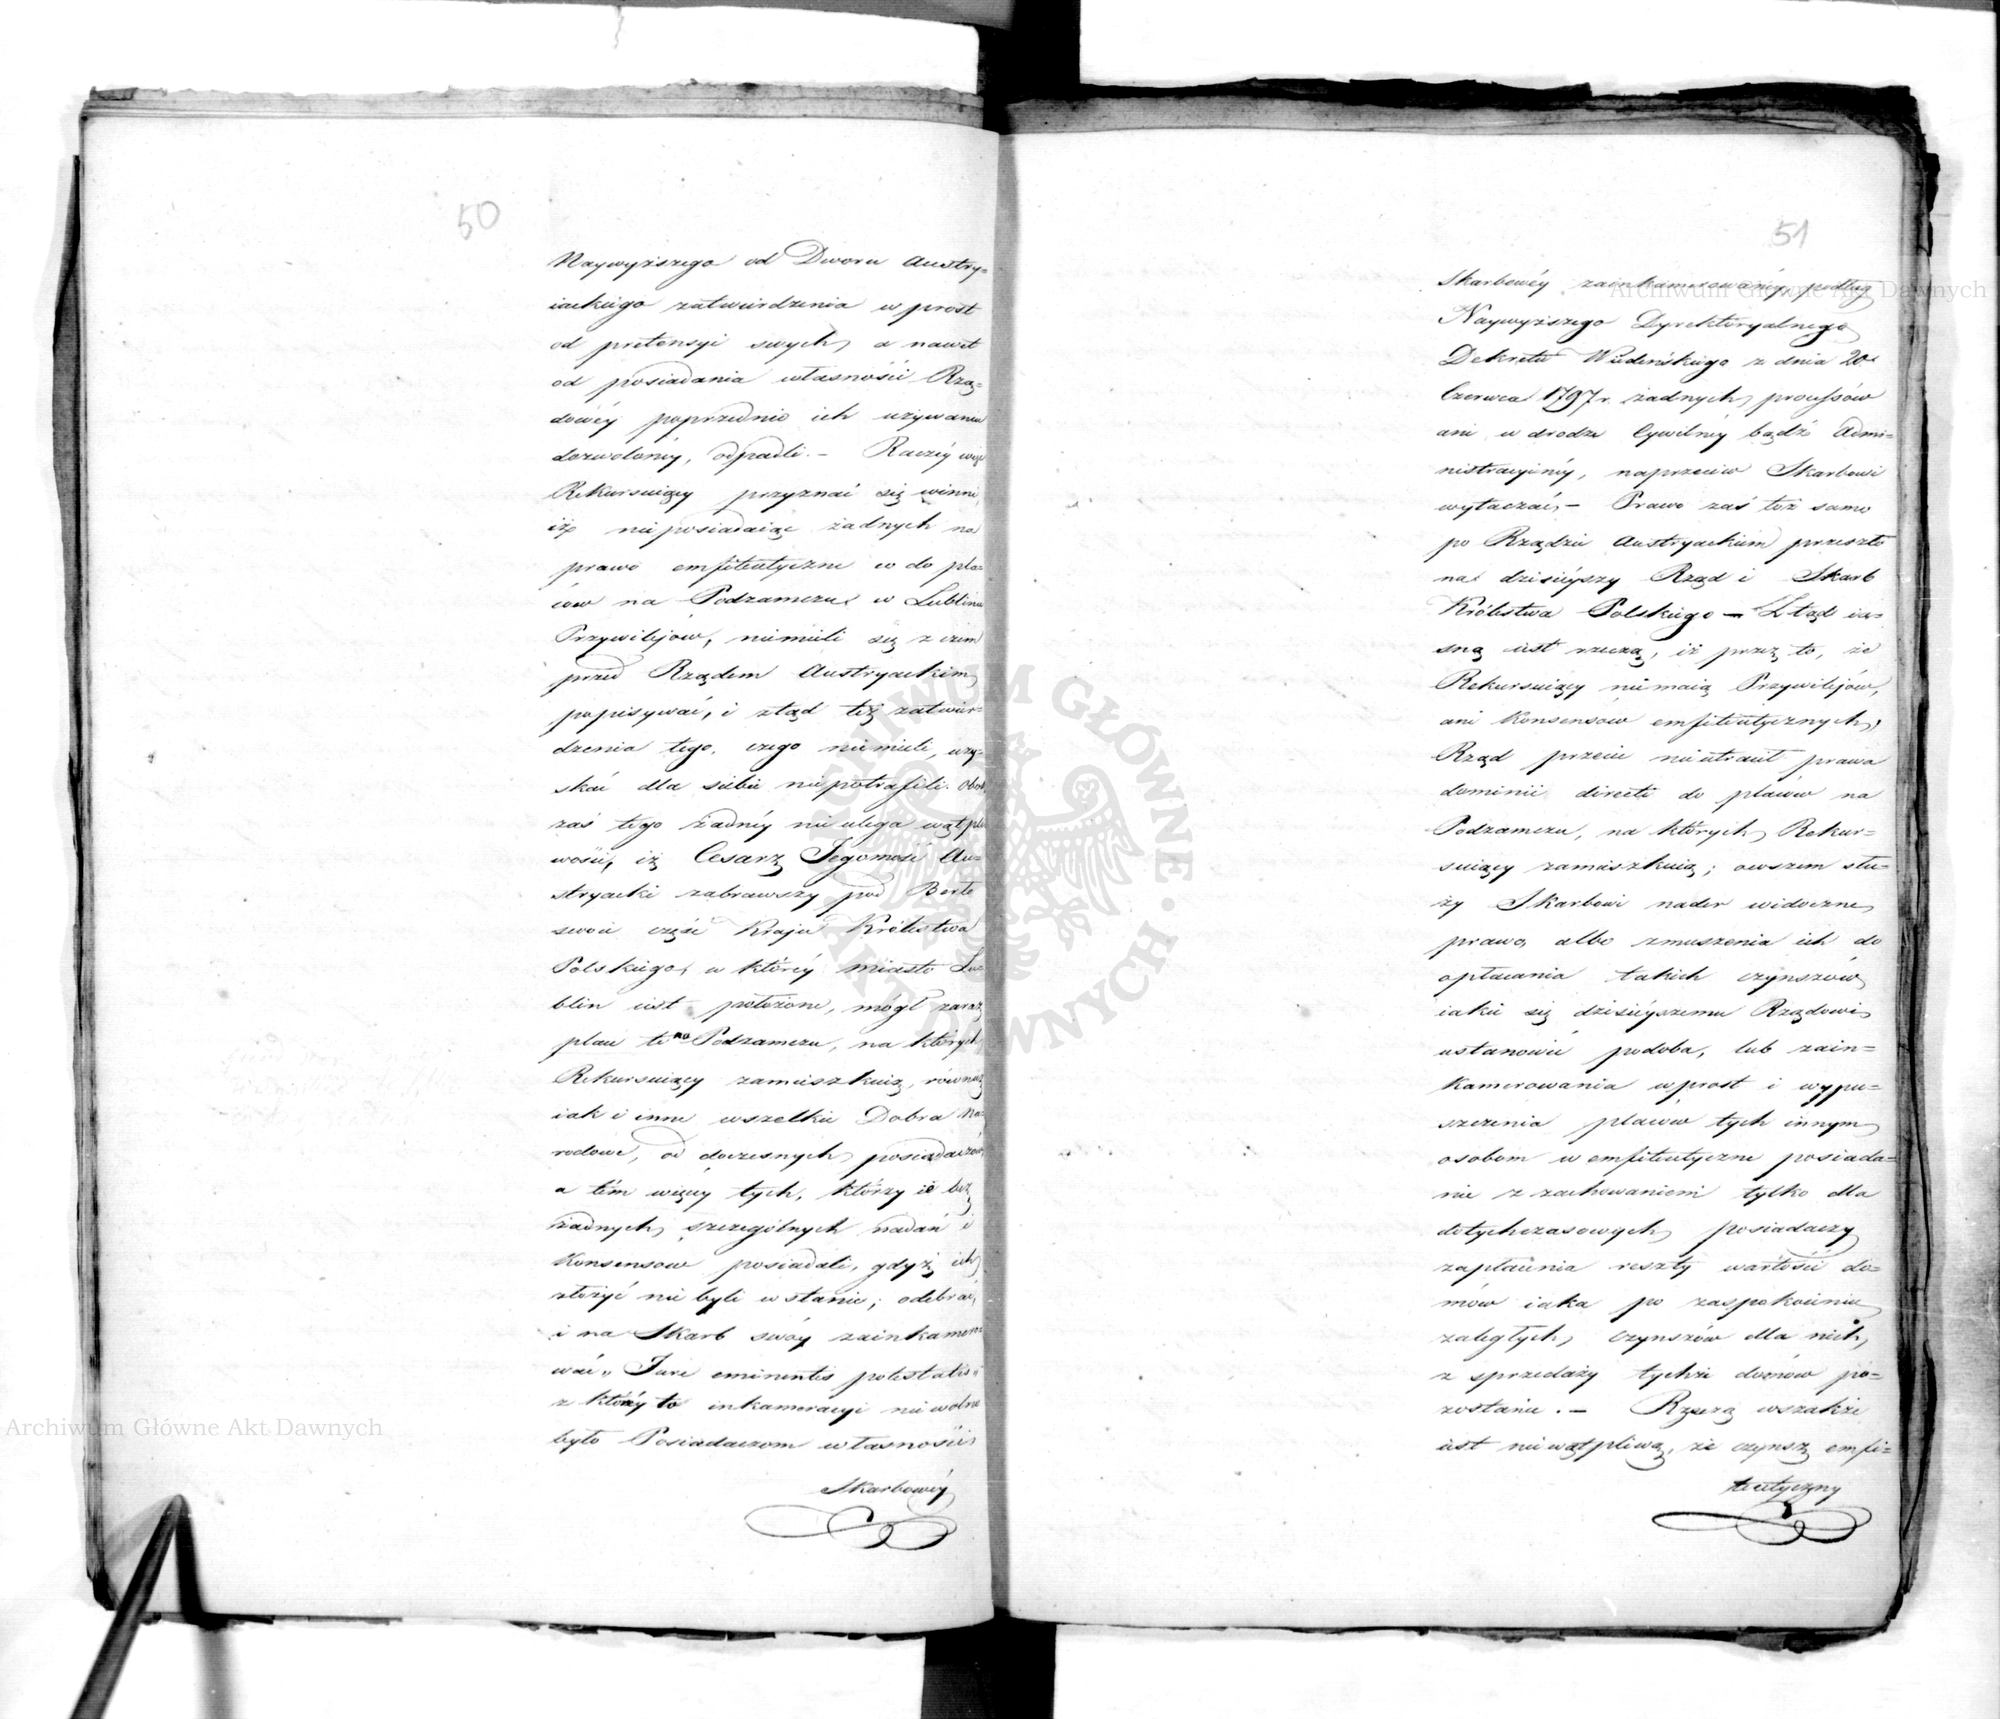 50
Naywyższego od Dworu Austry=
iackiego zatwierdzenia wprost
od pretensyi swych, a nawet
od posiadania własności Rzą=
dowéy poprzednio ich używaniu
dozwoloney, odpadli. – Raczéy więc
Rekursuiący przyznać się winni,
iż nieposiadaiąc żadnych na
prawo emfiteutyczne w do pla=
ców na Podzamczu w Lublinie
Przywileiów, niemieli się z czem
przed Rządem Austryackim
popisywać, i ztąd też zatwier=
dzenia tego, czego niemieli, uzy=
skać dla siebie niepotrafili. Obok
zaś tego żadnéy nieulega wątpli
wości, iż Cesarz Jegomość Au=
stryacki zabrawszy pod Berło
swoie część Kraju Królestwa
Polskiego, w któréy miasto Lu=
blin iest położone, mógł zaraz
place te na Podzamczu, na których
Rekursuiący zamieszkuią, równie
iak i inne wszelkie Dobra Na=
rodowe, od doczesnych posiadaczów
a tém więcey tych, którzy ie bez
żadnych szczególnych nadań i
Konsensow posiadali, gdyż ich
złożyć nie byli w stanie; odebrać,
i na Skarb swóy zainkamero=
wać „ Jure eminentis potestatis „
z któréy to inkameracyi nie wolno
było Posiadaczom własności
Skarbowéy
51
Skarbowéy zainkamerowanéy podług
Naywyższego Dyrektoryalnego
Dekretu Wiedeńskiego z dnia 20
Czerwca 1797 r. żadnych processów
ani w drodze Cywilnéy bądź Admi=
nistracyinéy, naprzeciw Skarbowi
wytaczać, – Prawo zaś toż samo
po Rządzie Austryackim przeszło
na dzisieyszy Rząd i Skarb
Królestwa Polskiego – Ztąd ia=
sną iest rzeczą, iż przez to, że
Rekursuiący niemaią Przywileiów,
ani Konsensów emfiteutycznych,
Rząd przecie nieutracił prawa
dominii directi do placów na
Podzamczu, na których Rekur=
suiący zamieszkuią; owszem słu=
ży Skarbowi nader widoczne
prawo, albo zmuszenia ich do
opłacania takich czynszów
iakie się dzisieyszemu Rządowi
ustanowić podoba, lub zain=
kamerowania wprost i wypu=
szczenia placów tych innym
osobom w emfiteutyczne posiada=
nie z zachowaniem tylko dla
dotychczasowych posiadaczy
zapłacenia reszty wartości do=
mów iaka po zaspokoieniu
zaległych czynszów dla nich,
z sprzedaży tychże domów po=
zostanie. – Rzeczą wszakże
iest niewątpliwą, że czynsz emfi=
teutyczny
Archiwum Główne Akt Dawnych
Archiwum Główne Akt Dawnych
ARCHIWUM GŁÓWNE AKT DAWNYCH